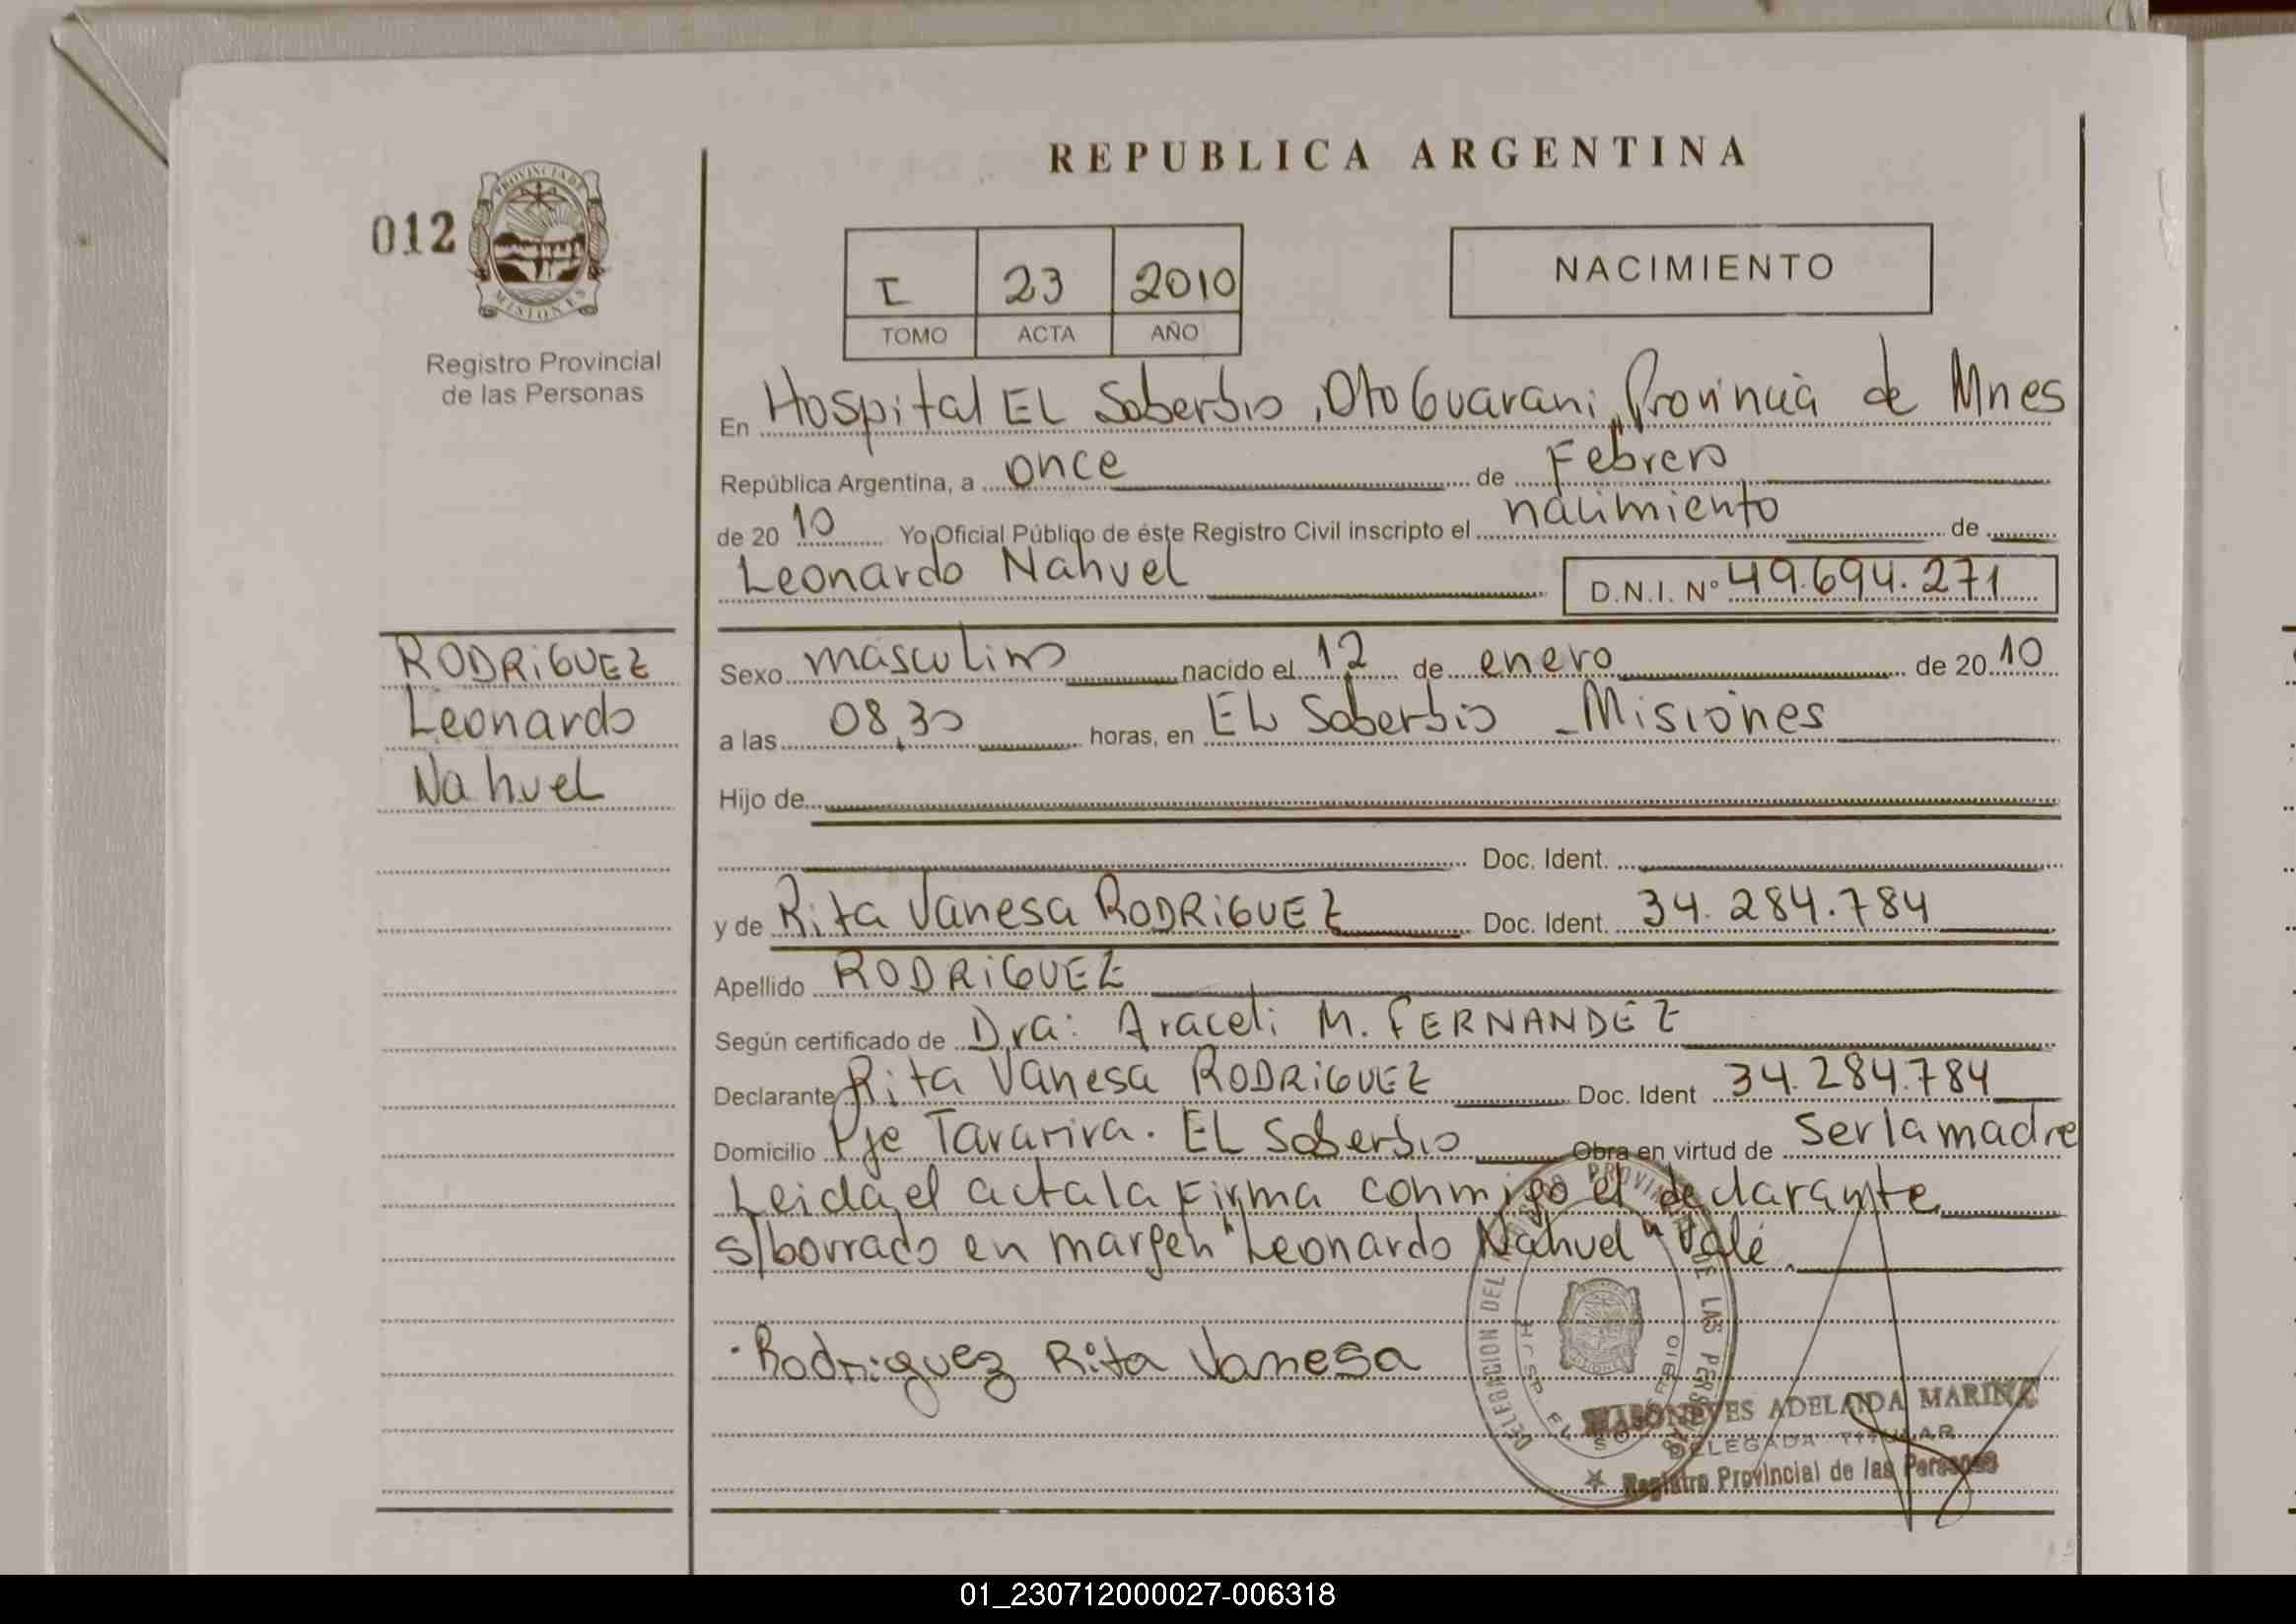 REPUBLICA ARGENTINA
012
PROVINCIA DE
MISIONES
Registro Provincial
de las Personas
I 23 2010
TOMO ACTA AÑO
NACIMIENTO
En Hospital EL Soberbio, Dto Guarani, Provincia de Mnes
República Argentina, a once de Febrero
de 2010 Yo Oficial Público de éste Registro Civil inscripto el nacimiento de
Leonardo Nahuel D.N.I. Nº 49.694.271
RODRIGUEZ
Leonardo
Nahuel
Sexo masculino nacido el 12 de enero de 2010
a las 08,30 horas, en EL Soberbio - Misiones
Hijo de
Doc. Ident.
y de Rita Vanesa RODRIGUEZ Doc. Ident. 34.284.784
Apellido RODRIGUEZ
Según certificado de Dra: Araceli M. FERNANDEZ
Declarante Rita Vanesa RODRIGUEZ Doc. Ident 34.284.784
Domicilio Pje Tararira. EL Soberbio Obra en virtud de ser la madre
Leida el acta la firma conmigo el declarante
s/borrado en margen "Leonardo Nahuel" Vale
Rodriguez Rita Vanesa
DELEGACION DEL PROVINCIAL DE LAS PERSONAS
EL SOBERBIO
ADELAIDA MARINA
DELEGADA TITULAR
Registro Provincial de las Personas
01_230712000027-006318